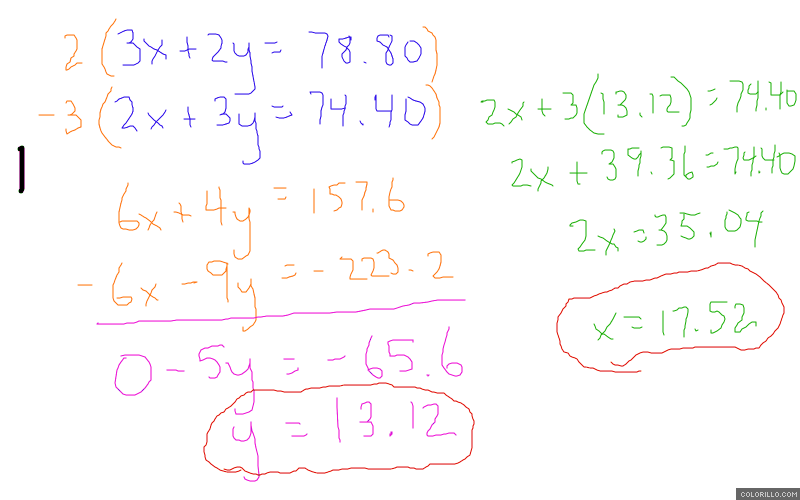 2(3x+2y=78.80)
-3(2x+3y=74.40)
6x+4y=157.6
-6x-9y=-223.2
0-5y=-65.6
y=13.12
2x+3(13.12)=74.40
2x+39.36=74.40
2x=35.04
x=17.52
COLORILLO.COM